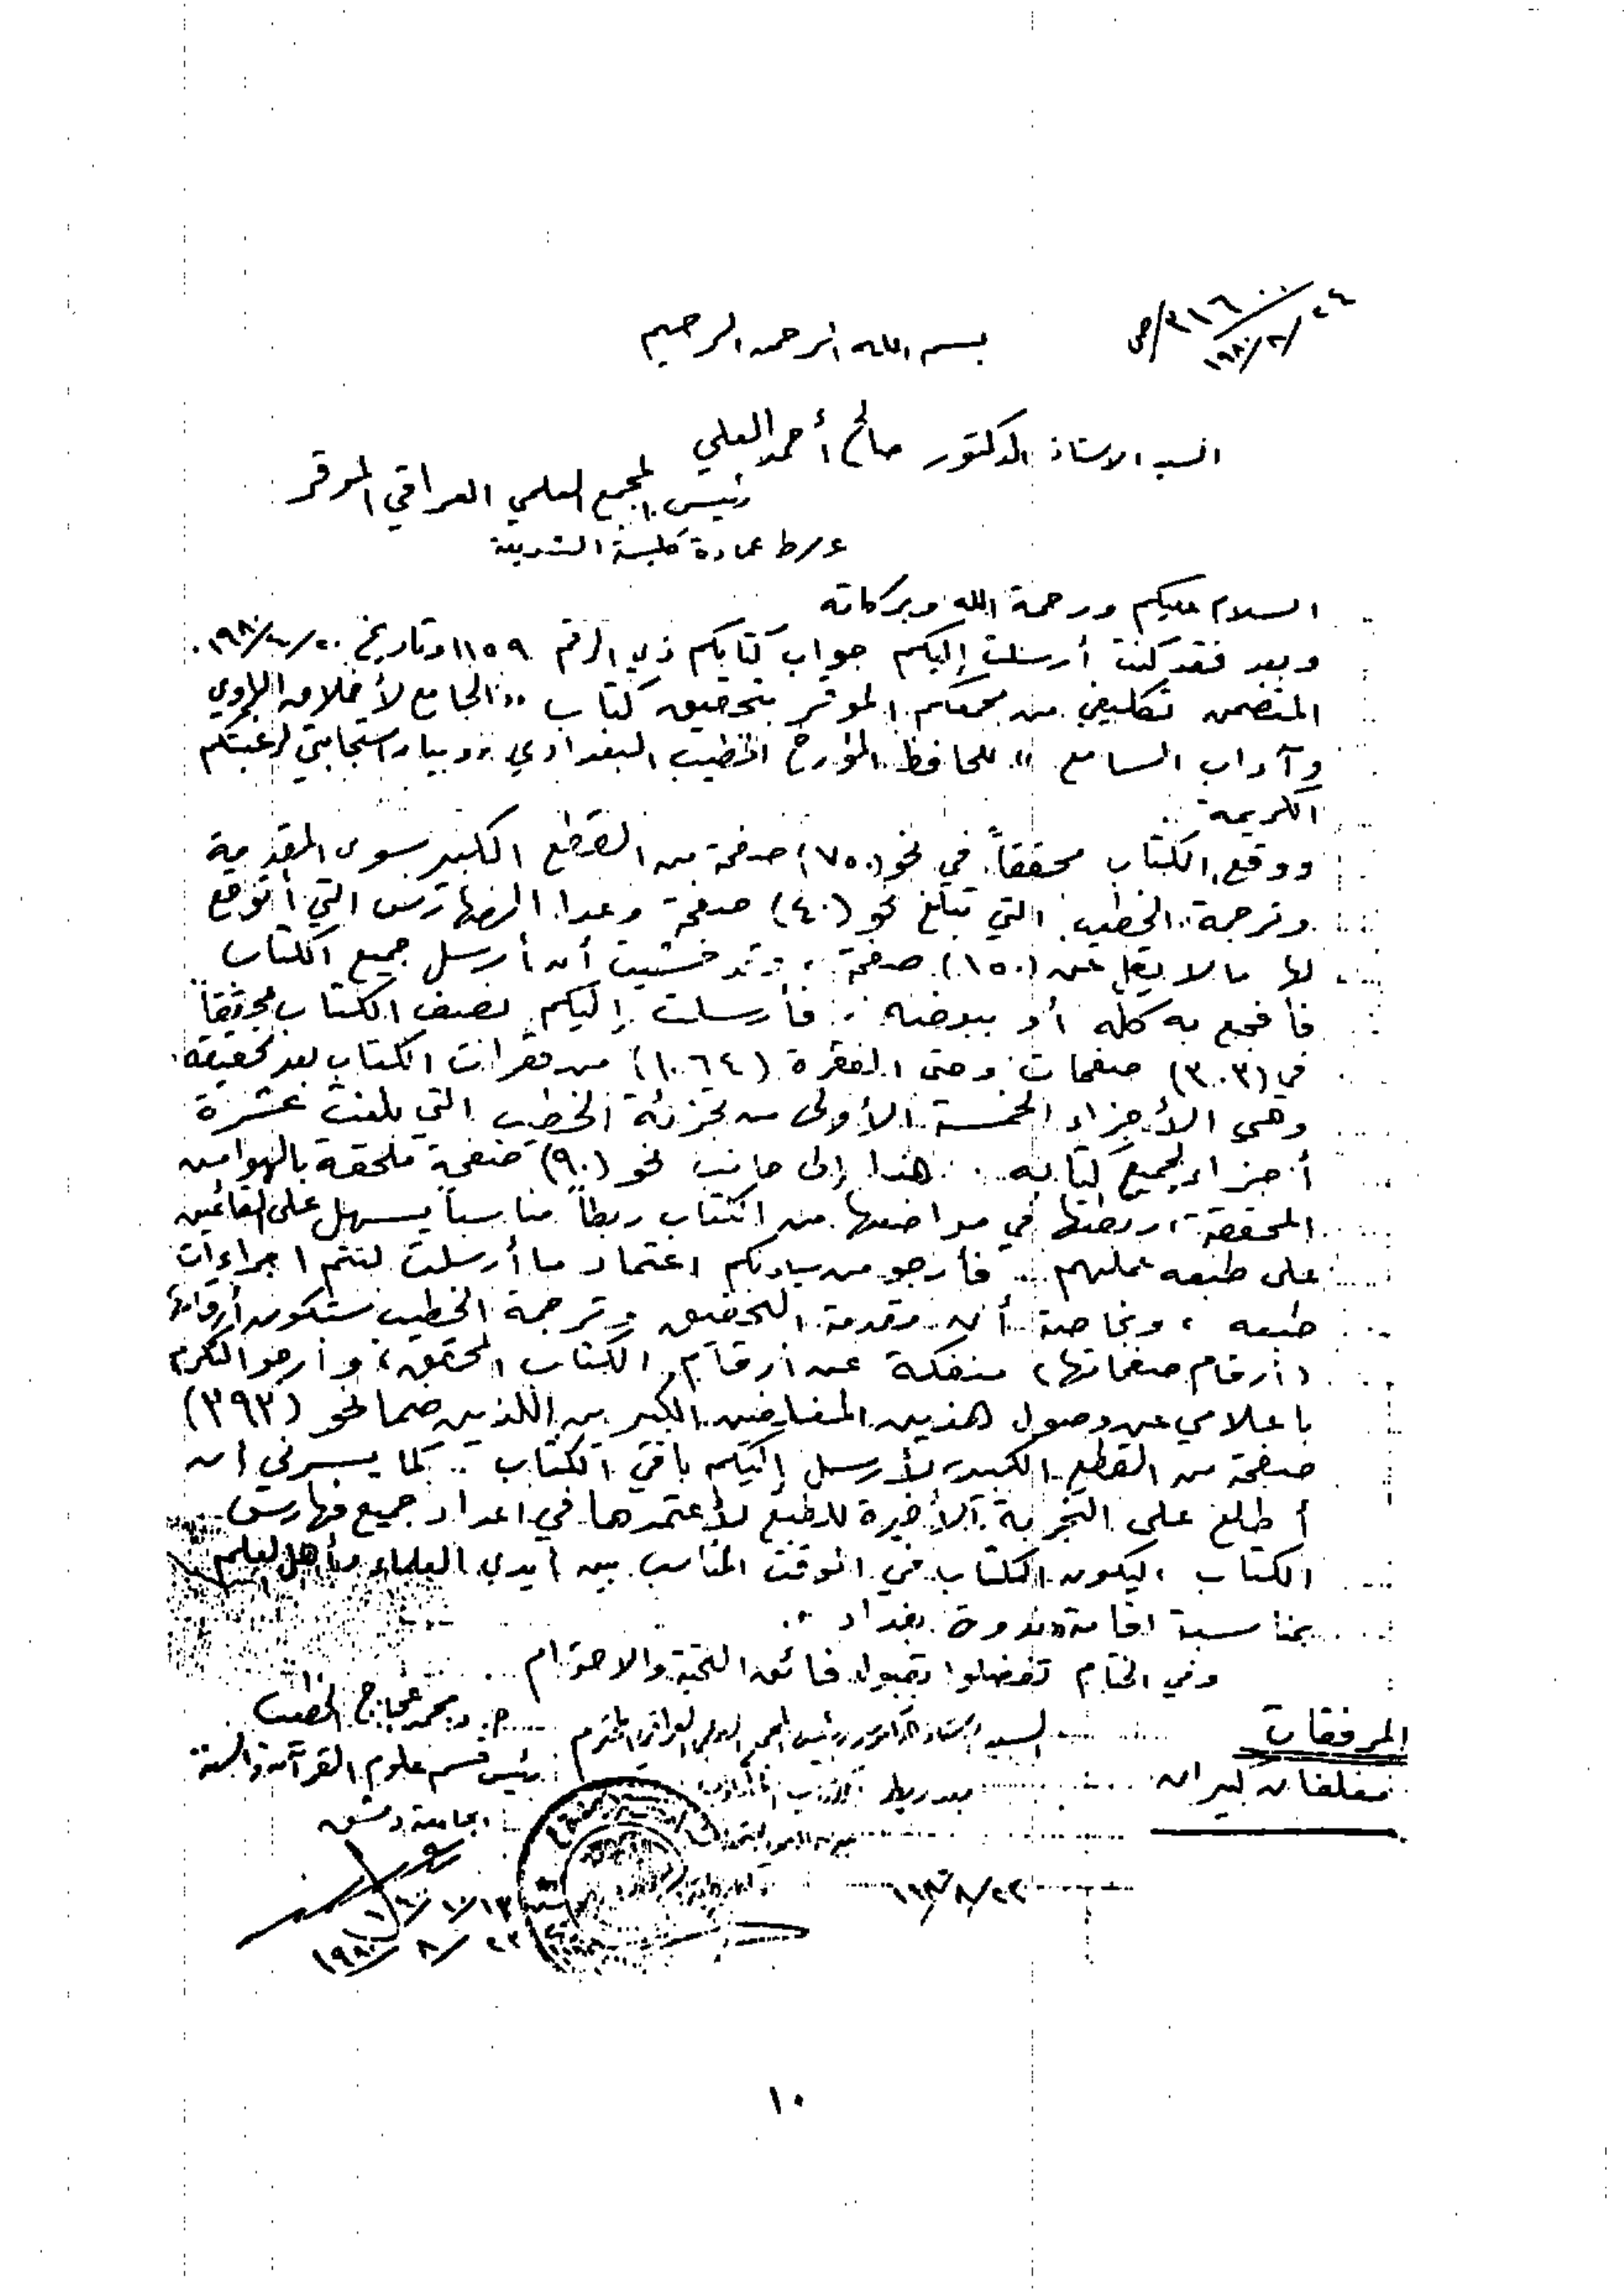 ٣١٦٠٠/ص
٢٤/٨/١٩٨٠
بسم الله الرحمن الرحيم
السيد الاستاذ الدكتور صالح أحمد العلي
رئيس المجمع العلمي العراقي الموقر
وسط عمادة كلية الشريعة
السلام عليكم ورحمة الله وبركاته
وبعد فقد كنت أرسلت إليكم جواب كتابكم ذي الرقم ١١٥٩ وتاريخ
المتضمن تكليفي من مجمعكم الموقر بتحقيق كتاب «الجامع لأخلاق الراوي
وآداب السامع» للحافظ المؤرخ الخطيب البغدادي، وبيان استجابتي لرغبتكم
الكريمة ..
ووقع الكتاب محققاً في نحو (٧٥٠) صفحة من القطع الكبير سوى المقدمة
وترجمة الخطيب التي تبلغ نحو (٤٠) صفحة وعدا الفهارس التي أتوقع
لها ما لا يقل عن (١٥٠) صفحة، وقد خشيت أن أرسل جميع الكتاب
فأفجع به كله أو ببعضه. فأرسلت إليكم نصف الكتاب محققاً
في (٣٠٣) صفحات وحتى الفقرة (١٠٦٤) من فقرات الكتاب بعد تحقيقه.
وهي الأجزاء الخمسة الأولى من تجزئة الخطيب التي بلغت عشرة
أجزاء لجميع كتابه .. هذا إلى جانب نحو (٩٠) صفحة ملحقة بالهوامش
المحققة، ربطتها في مواضعها من الكتاب ربطاً مناسباً يسهل على القائمين
على طبعه عملهم .. فأرجو من سيادتكم اعتماد ما أرسلت لتتم اجراءات
طبعه، وبخاصة أن مقدمة التحقيق وترجمة الخطيب ستكون أرقامها
(أرقام صفحاتها) منفكة عن أرقام الكتاب المحقق، وأرجو التكرم
باعلامي عن وصول هذين المغلفين الكبيرين اللذين ضما نحو (٣٩٣)
صفحة من القطع الكبير، لأرسل إليكم باقي الكتاب .. كما يسرني ان
أطلع على التجربة الأخيرة للطبع لأعتمدها في اعداد جميع فهارس
الكتاب، ليكون الكتاب في الوقت المناسب بين أيدي العلماء وأهل العلم
بمناسبة اقامة ندوة بغداد ..
وفي الختام تفضلوا بقبول فائق التحية والاحترام
المرفقات
مغلفان كبيران
د. محمد عجاج الخطيب
رئيس قسم علوم القرآن والسنة
بجامعة دمشق
السيد الاستاذ الدكتور رئيس المجمع العلمي العراقي المحترم
٢٣/٨/١٩٨٠
١٠